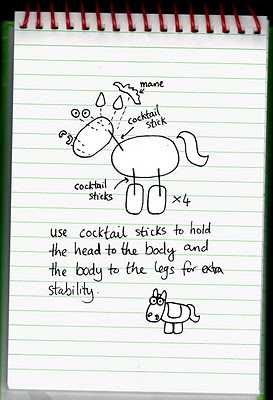 mane
cocktail
stick
cocktail
sticks
×4
use cocktail sticks to hold
the head to the body and
the body to the legs for extra
stability.